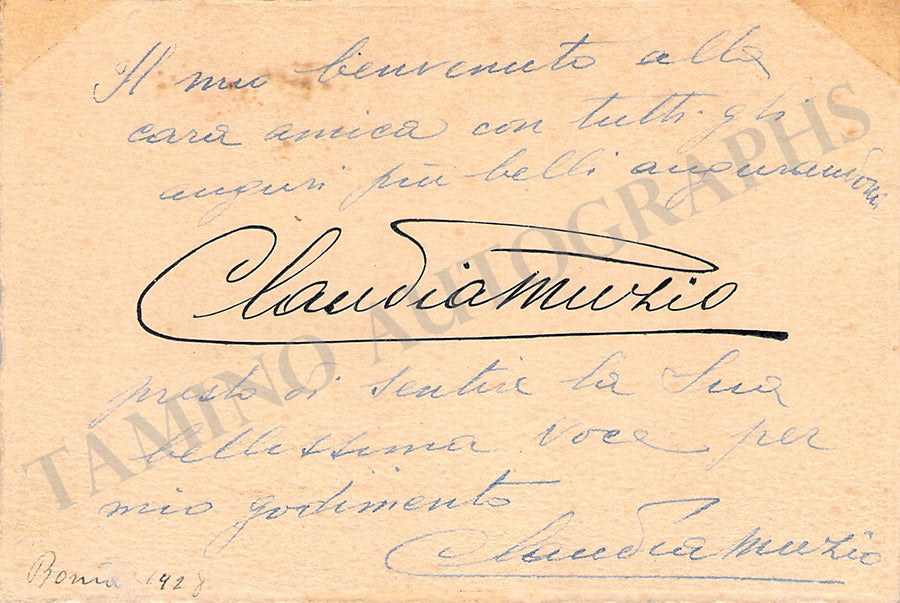 Il mio benvenuto alla
cara amica con tutti gli
auguri più belli augurandomi
Claudia Muzio
presto di sentire la Sua
bellissima voce per
mio godimento
Claudia Muzio
Roma 1928
TAMINO AUTOGRAPHS